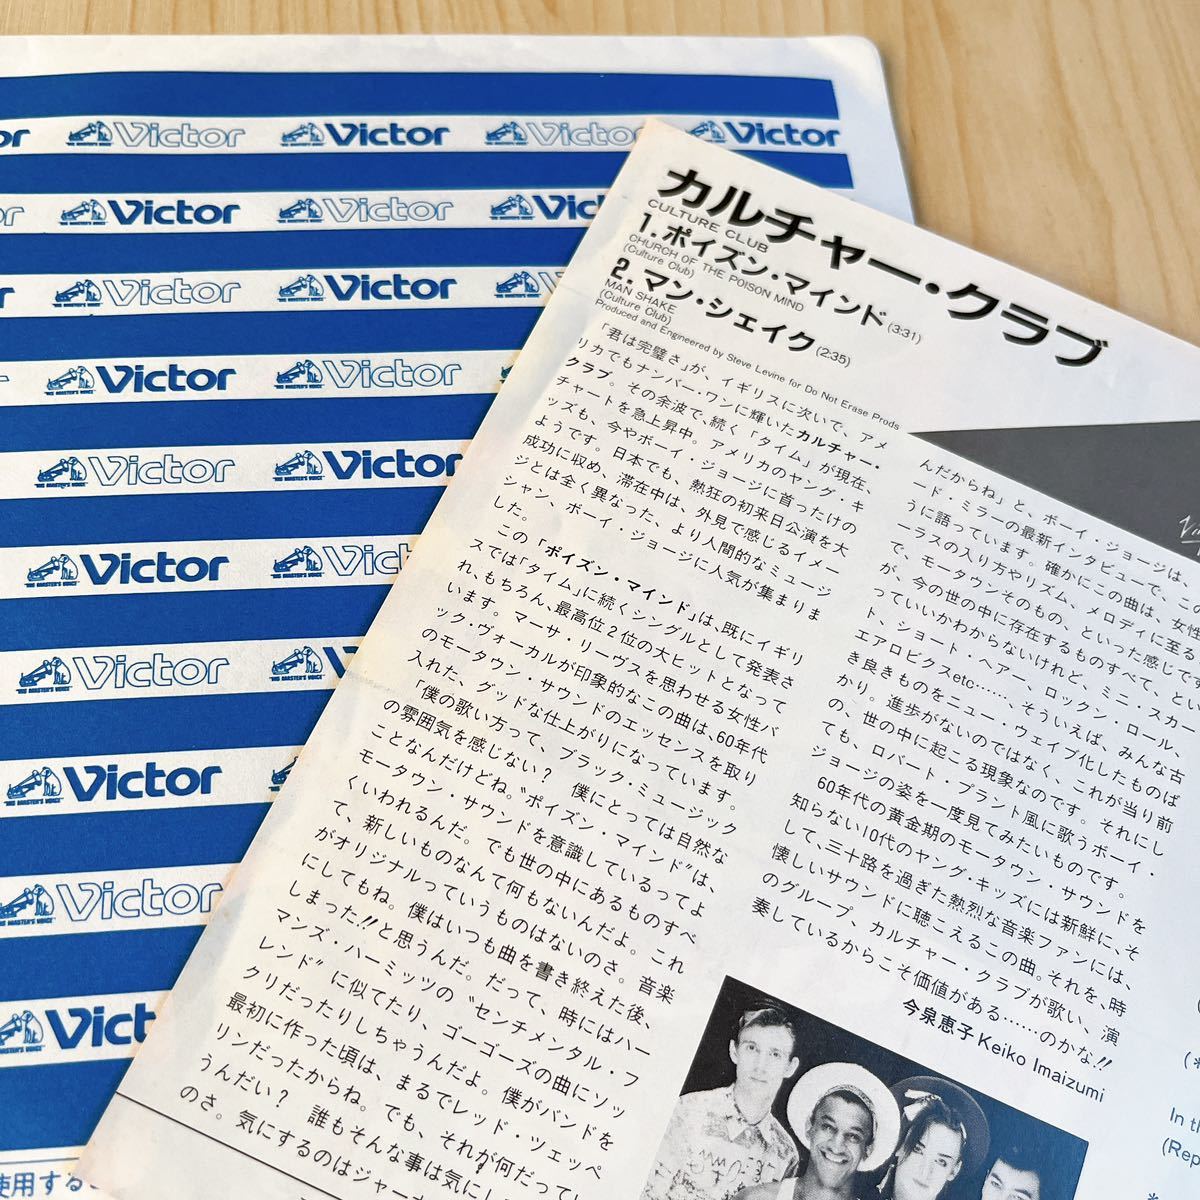 Victor Victor Victor Victor
Victor Victor Vic
Victor Victor Victor
Victor Victor
Victor Victor
Victor Victor
Victor Victor
Victor
Victor
Vict
HIS MASTER'S VOICE
使用する
カルチャー・クラブ
CULTURE CLUB
1. ポイズン・マインド (3:31)
CHURCH OF THE POISON MIND
(Culture Club)
2. マン・シェイク (2:35)
MAN SHAKE
(Culture Club)
Produced and Engineered by Steve Levine for Do Not Erase Prods
「君は完璧さ」が、イギリスに次いで、アメ
リカでもナンバー・ワンに輝いたカルチャー・
クラブ。その余波で、続く「タイム」が現在、
チャートを急上昇中。アメリカのヤング・キ
ッズも、今やボーイ・ジョージに首ったけの
ようです。日本でも、熱狂の初来日公演を大
成功に収め、滞在中は、外見で感じるイメー
ジとは全く異なった、より人間的なミュージ
シャン、ボーイ・ジョージに人気が集まりま
した。
この「ポイズン・マインド」は、既にイギリ
スでは「タイム」に続くシングルとして発表さ
れ、もちろん、最高位2位の大ヒットとなって
います。マーサ・リーヴスを思わせる女性バ
ック・ヴォーカルが印象的なこの曲は、60年代
のモータウン・サウンドのエッセンスを取り
入れた、グッドな仕上がりになっています。
「僕の歌い方って、ブラック・ミュージック
の雰囲気を感じない? 僕にとっては自然な
ことなんだけどね。“ポイズン・マインド”は、
モータウン・サウンドを意識しているってよ
くいわれるんだ。でも世の中にあるものすべ
て、新しいものなんて何もないんだよ。これ
がオリジナルっていうものはないのさ。音楽
にしてもね。僕はいつも曲を書き終えた後、
しまった!!と思うんだ。だって、時にはハー
マンズ・ハーミッツの“センチメンタル・フ
レンド”に似てたり、ゴーゴーズの曲にソッ
クリだったりしちゃうんだよ。僕がバンドを
最初に作った頃は、まるでレッド・ツェッペ
リンだったからね。でも、それが何だってい
うんだい? 誰もそんな事は気に
のさ。気にするのはジャーナ
んだからね」と、ボーイ・ジョージは、
ード・ミラーの最新インタビューで、この
うに語っています。確かにこの曲は、女性
ーラスの入り方やリズム、メロディに至る
で、モータウンそのもの、といった感じです
が、今の世の中に存在するものすべて、とい
っていいかわからないけれど、ミニ・スカー
ト、ショート・ヘアー、ロックン・ロール、
エアロビクスetc……、そういえば、みんな古
き良きものをニュー・ウェイブ化したものば
かり。進歩がないのではなく、これが当り前
の、世の中に起こる現象なのです。それにし
ても、ロバート・プラント風に歌うボーイ・
ジョージの姿を一度見てみたいものです。
60年代の黄金期のモータウン・サウンドを
知らない10代のヤング・キッズには新鮮に、そ
して、三十路を過ぎた熱烈な音楽ファンには、
懐しいサウンドに聴こえるこの曲。それを、時
のグループ、カルチャー・クラブが歌い、演
奏しているからこそ価値がある……のかな!!
今泉恵子 Keiko Imaizumi
In th
(Rep